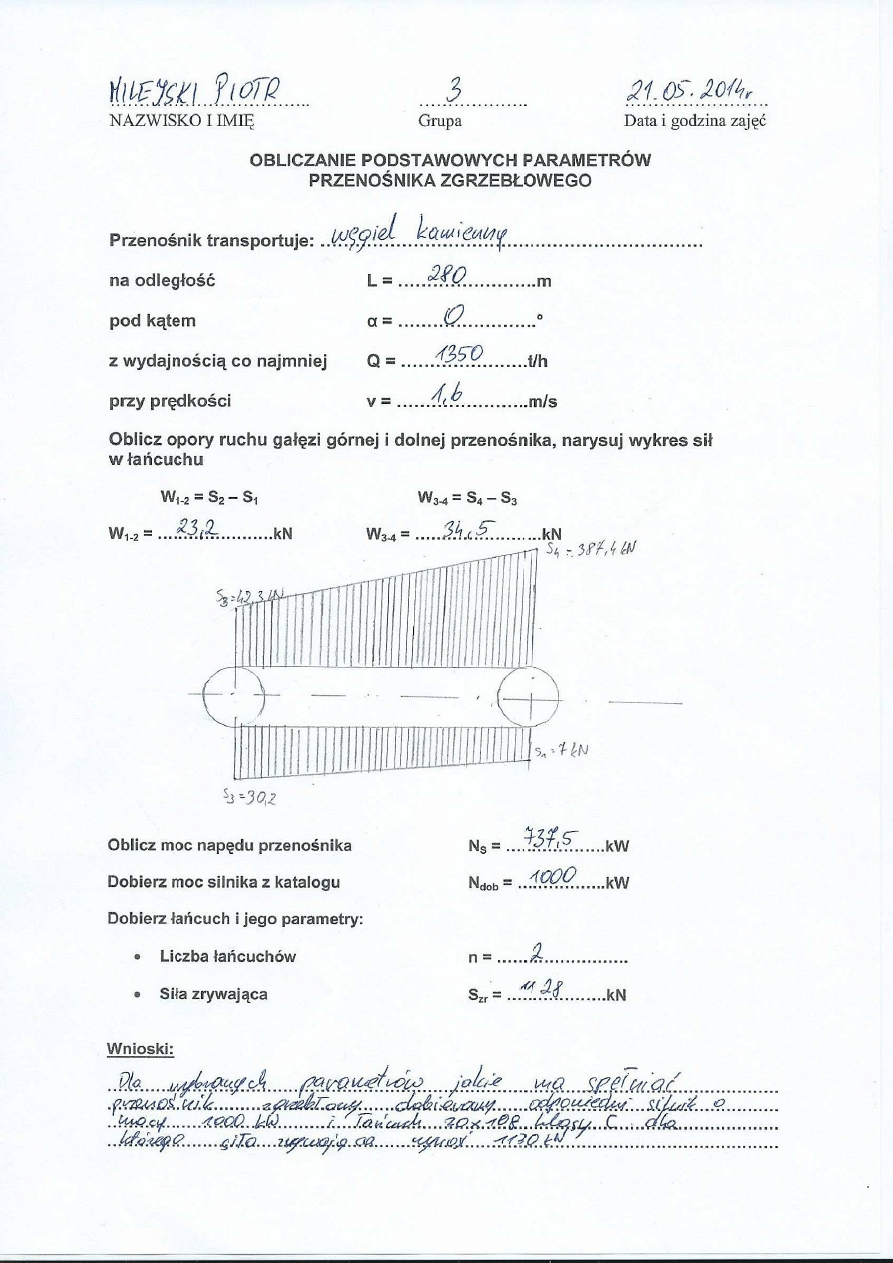 MILEJSKI PIOTR 3 21.05.2014r
NAZWISKO I IMIĘ Grupa Data i godzina zajęć
OBLICZANIE PODSTAWOWYCH PARAMETRÓW
PRZENOŚNIKA ZGRZEBŁOWEGO
Przenośnik transportuje: węgiel kamienny
na odległość L = 280 m
pod kątem α = 0 °
z wydajnością co najmniej Q = 1350 t/h
przy prędkości v = 1,6 m/s
Oblicz opory ruchu gałęzi górnej i dolnej przenośnika, narysuj wykres sił
w łańcuchu
W1-2 = S2 – S1 W3-4 = S4 – S3
W1-2 = 23,2 kN W3-4 = 34,5 kN
S4 = 387,4 kN
S3=42,3 kN
S1=7 kN
S3=30,2
Oblicz moc napędu przenośnika NS = 737,5 kW
Dobierz moc silnika z katalogu Ndob = 1000 kW
Dobierz łańcuch i jego parametry:
• Liczba łańcuchów n = 2
• Siła zrywająca Szr = 1128 kN
Wnioski:
Dla wybranych parametrów jakie ma spełniać
przenośnik zgrzebłowy dobieramy odpowiedni silnik o
mocy 1000 kW i łańcuch x108 klasy C dla
którego siła zrywająca wynosi 1130 kN